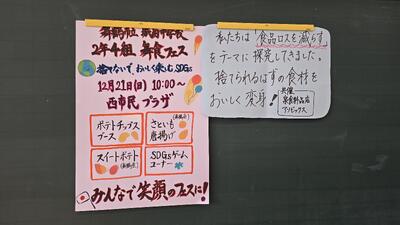 2年4組 舞食フェス
捨てないで、おいしく楽しむSDGs
12月21日(日) 10:00〜
西市民プラザ
ポテトチップス
ブース
さといも
唐揚げ
スイートポテト
SDGsゲーム
コーナー
みんなで笑顔のフェスに!
私たちは「食品ロスを減らす」
をテーマに探究してきました。
捨てられるはずの食材を
おいしく変身!
共催